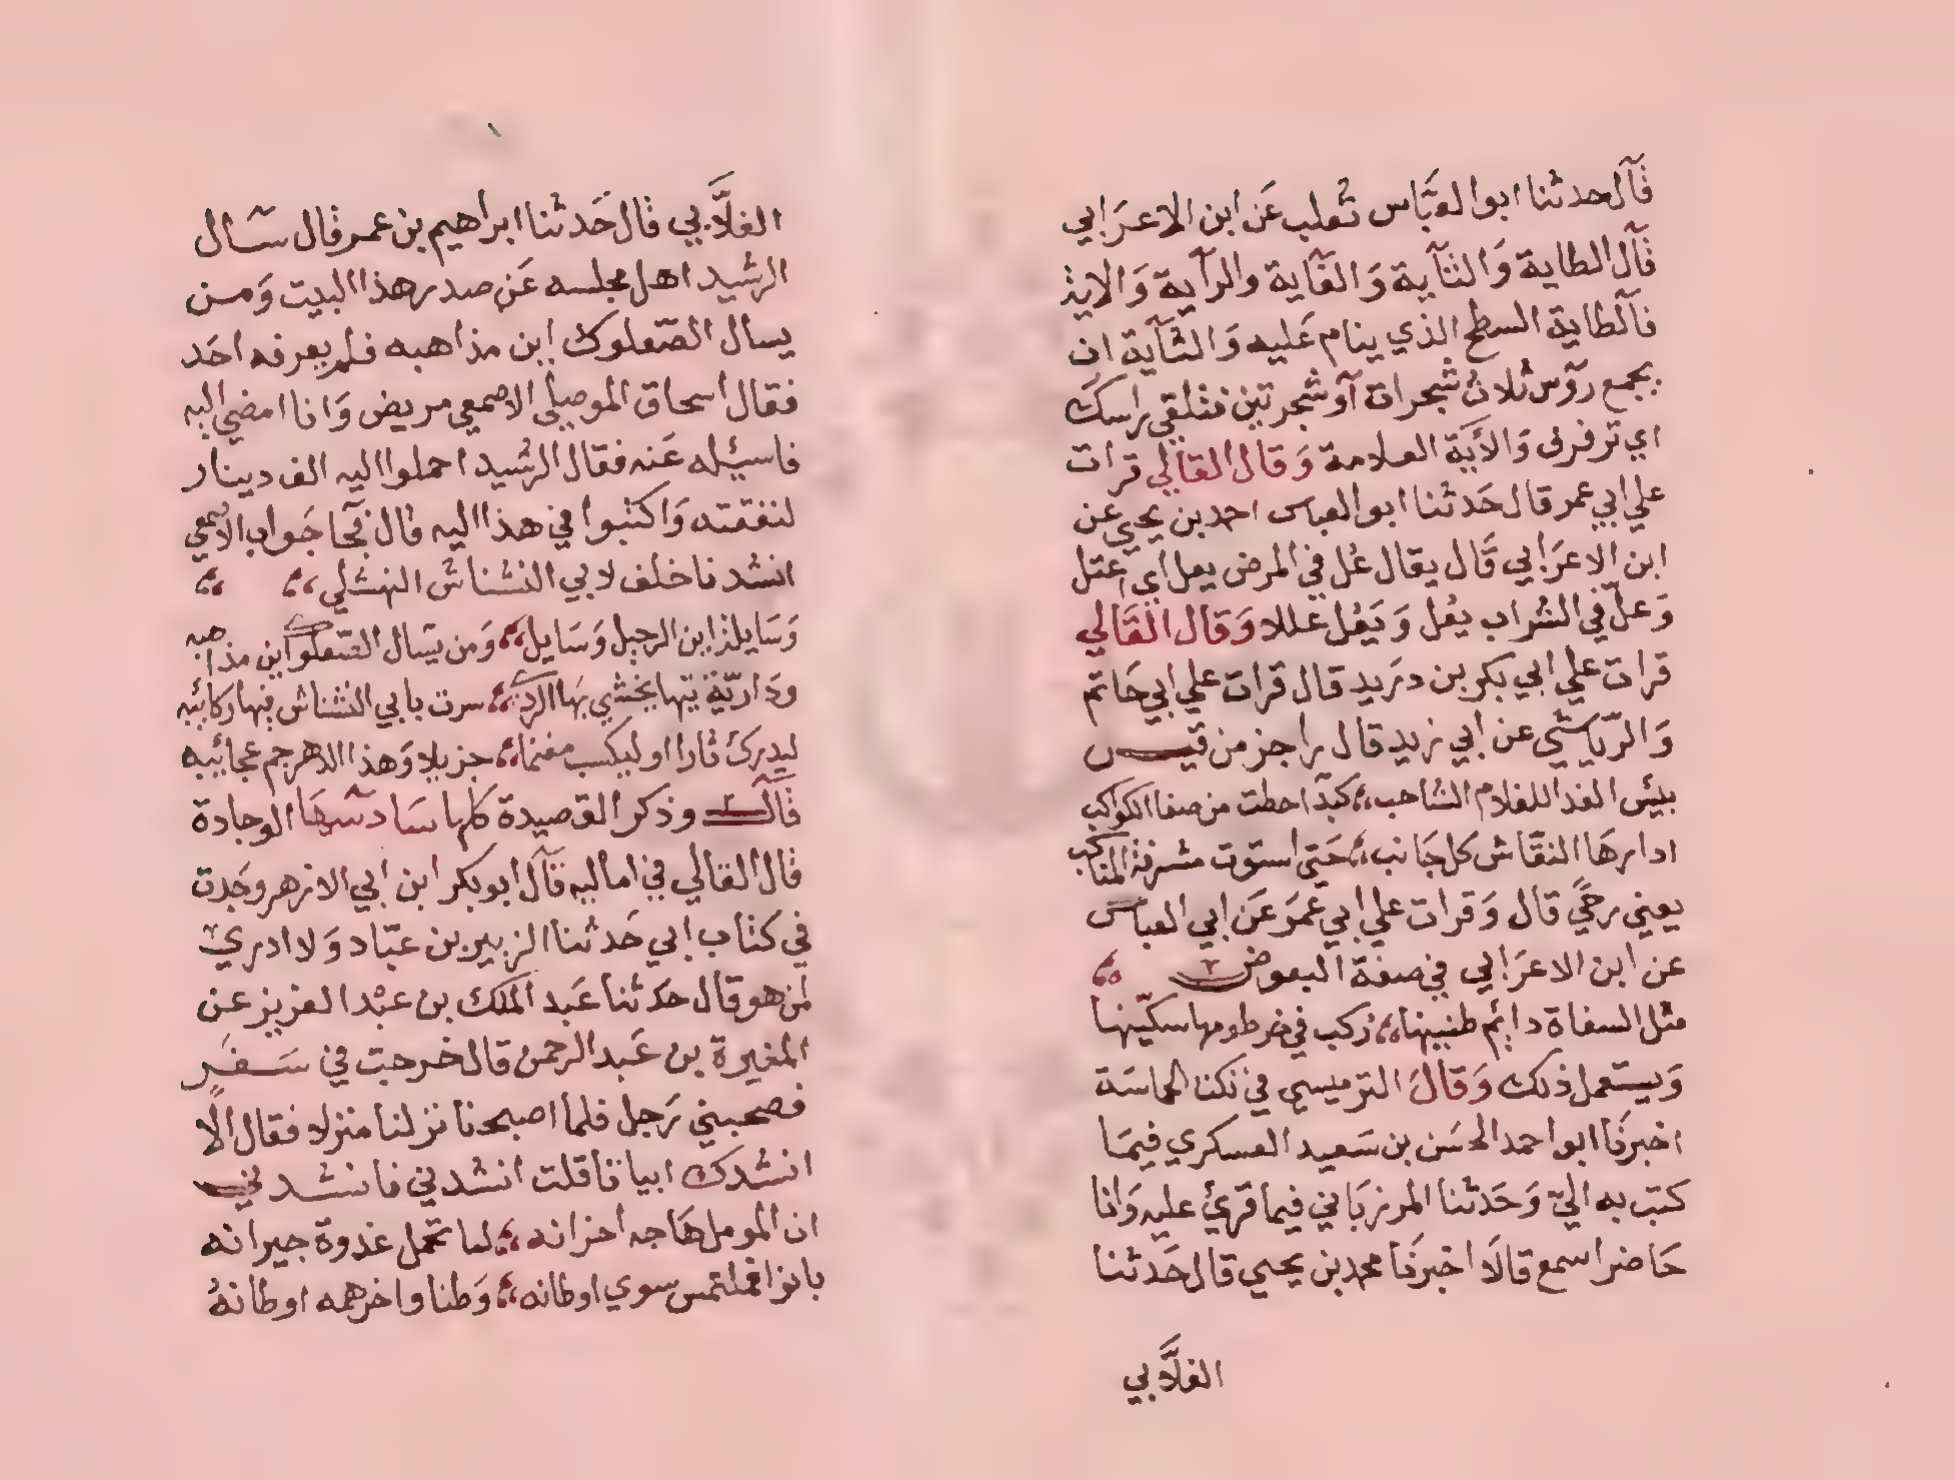 قال حدثنا ابوا لعباس ثعلب عن ابن الاعرابي
قال الطاية والثاية والغاية والراية والاية
فالطاية السطح الذي ينام عليه والثاية ان
يجمع رؤس ثلاث شجرات أو شجرتين فتلقى راسك
اي ترفرف والأية العلامة وقال القالي قرات
علي ابي عمر قال حدثنا ابو العباس احمد بن يحيى عن
ابن الاعرابي قال يقال عُل في المرض يعل اي اعتل
وعلّ في الشراب يعُل ويَعُل عللا وقال القالي
قرات علي ابي بكر بن دريد قال قرات علي ابي حاتم
والرياشي عن ابي زيد قال راجز من قيس
بيئس الغدا للغلام الشاحب كبدا حطت من صفا الكواكب
ادارها النقاش كل جانب حتى استوت مشرفة المناكب
يعني رحيً قال وقرات علي ابي عمر عن ابي العباس
عن ابن الاعرابي في صفة البعوض
مثل السفاة دائم طنينها ركب في خرطومها سكينها
ويستعمل ذلك وقال الترميسي في نكتا لحماسة
اخبرنا ابوا حمد الحسن بن سعيد العسكري فيما
كتب به اليّ وحدثنا المرزباني فيما قرئ عليه وانا
حاضرا سمع قالا اخبرنا محمد بن يحيى قال حدثنا
الغلّابي
الغلّابي قال حدثنا ابراهيم بن عمر قال سأل
الرشيد اهل مجلسه عن صدر هذا البيت ومن
يسال الصعلوك اين مذاهبه فلم يعرفه احد
فقال اسحاق الموصلي الاصمعي مريض وانا امضي اليه
فاسيله عنه فقال الرشيد احملوا اليه الف دينار
لنفقته واكتبوا في هذا اليه قال فجا جواب الاصمعي
انشدنا خلف لابي النشناش النهشلي
وسايلة اين الرحيل وسايل ومن يسال الصعلوك اين مذاهبه
وداوية تيها يخشى بها الردى سرت بابي النشناش فيها ركائبه
ليدرك ثارا او ليكسب مغنما جزيلا وهذا الدهر جم عجائبه
قال وذكر القصيدة كلها سادسها الوجادة
قال القالي في اماليه قال ابو بكر ابن ابي الازهر وجدت
في كتاب ابي حدثنا الزبير بن عبّاد ولا ادري
لمن هو قال حدثنا عبد الملك بن عبد العزيز عن
المغيرة بن عبد الرحمن قال خرجت في سفر
فصحبني رجل فلما اصبحنا نزلنا منزلا فقال الا
انشدك ابياتا قلت انشدني فانشدني
ان المومل هاجه احزانه لما تحمل غدوة جيرانه
بانوا فملتمس سوي اوطانه وطنا واخر همه اوطانه